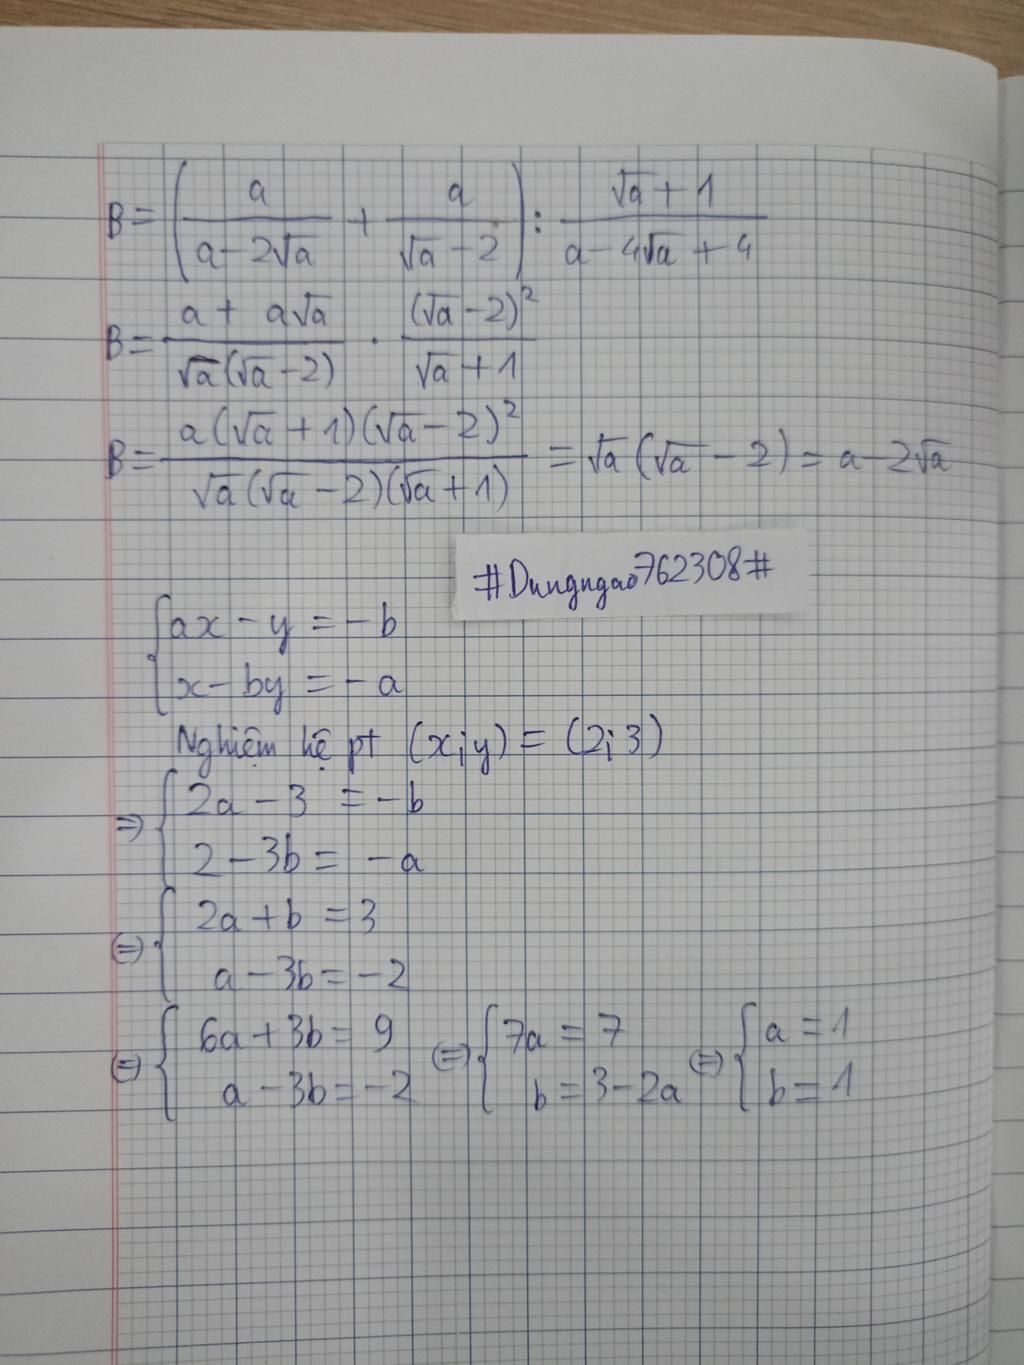 B = (a/(a - 2√a) + a/(√a - 2)) : (√a + 1)/(a - 4√a + 4)
B = (a + a√a)/(√a(√a - 2)) · (√a - 2)²/(√a + 1)
B = a(√a + 1)(√a - 2)²/(√a(√a - 2)(√a + 1)) = √a(√a - 2) = a - 2√a
#Dungngao762308#
{ax - y = -b
x - by = -a
Nghiệm hệ pt (x;y) = (2;3)
⇒ {2a - 3 = -b
2 - 3b = -a
⇔ {2a + b = 3
a - 3b = -2
⇔ {6a + 3b = 9 ⇔ {7a = 7 ⇔ {a = 1
a - 3b = -2 b = 3 - 2a b = 1